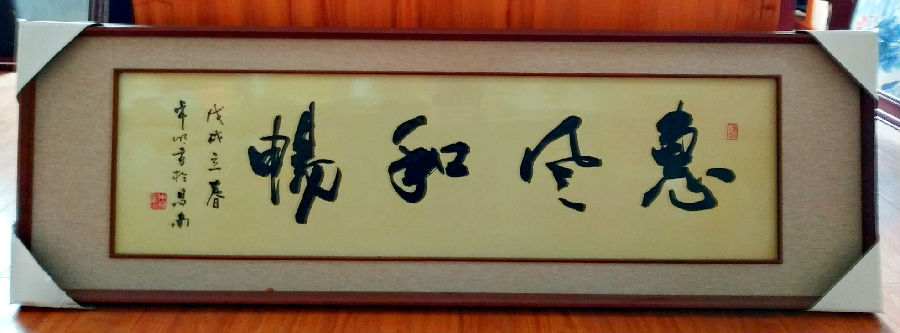 惠风和暢
戊戌立春
书於昌南